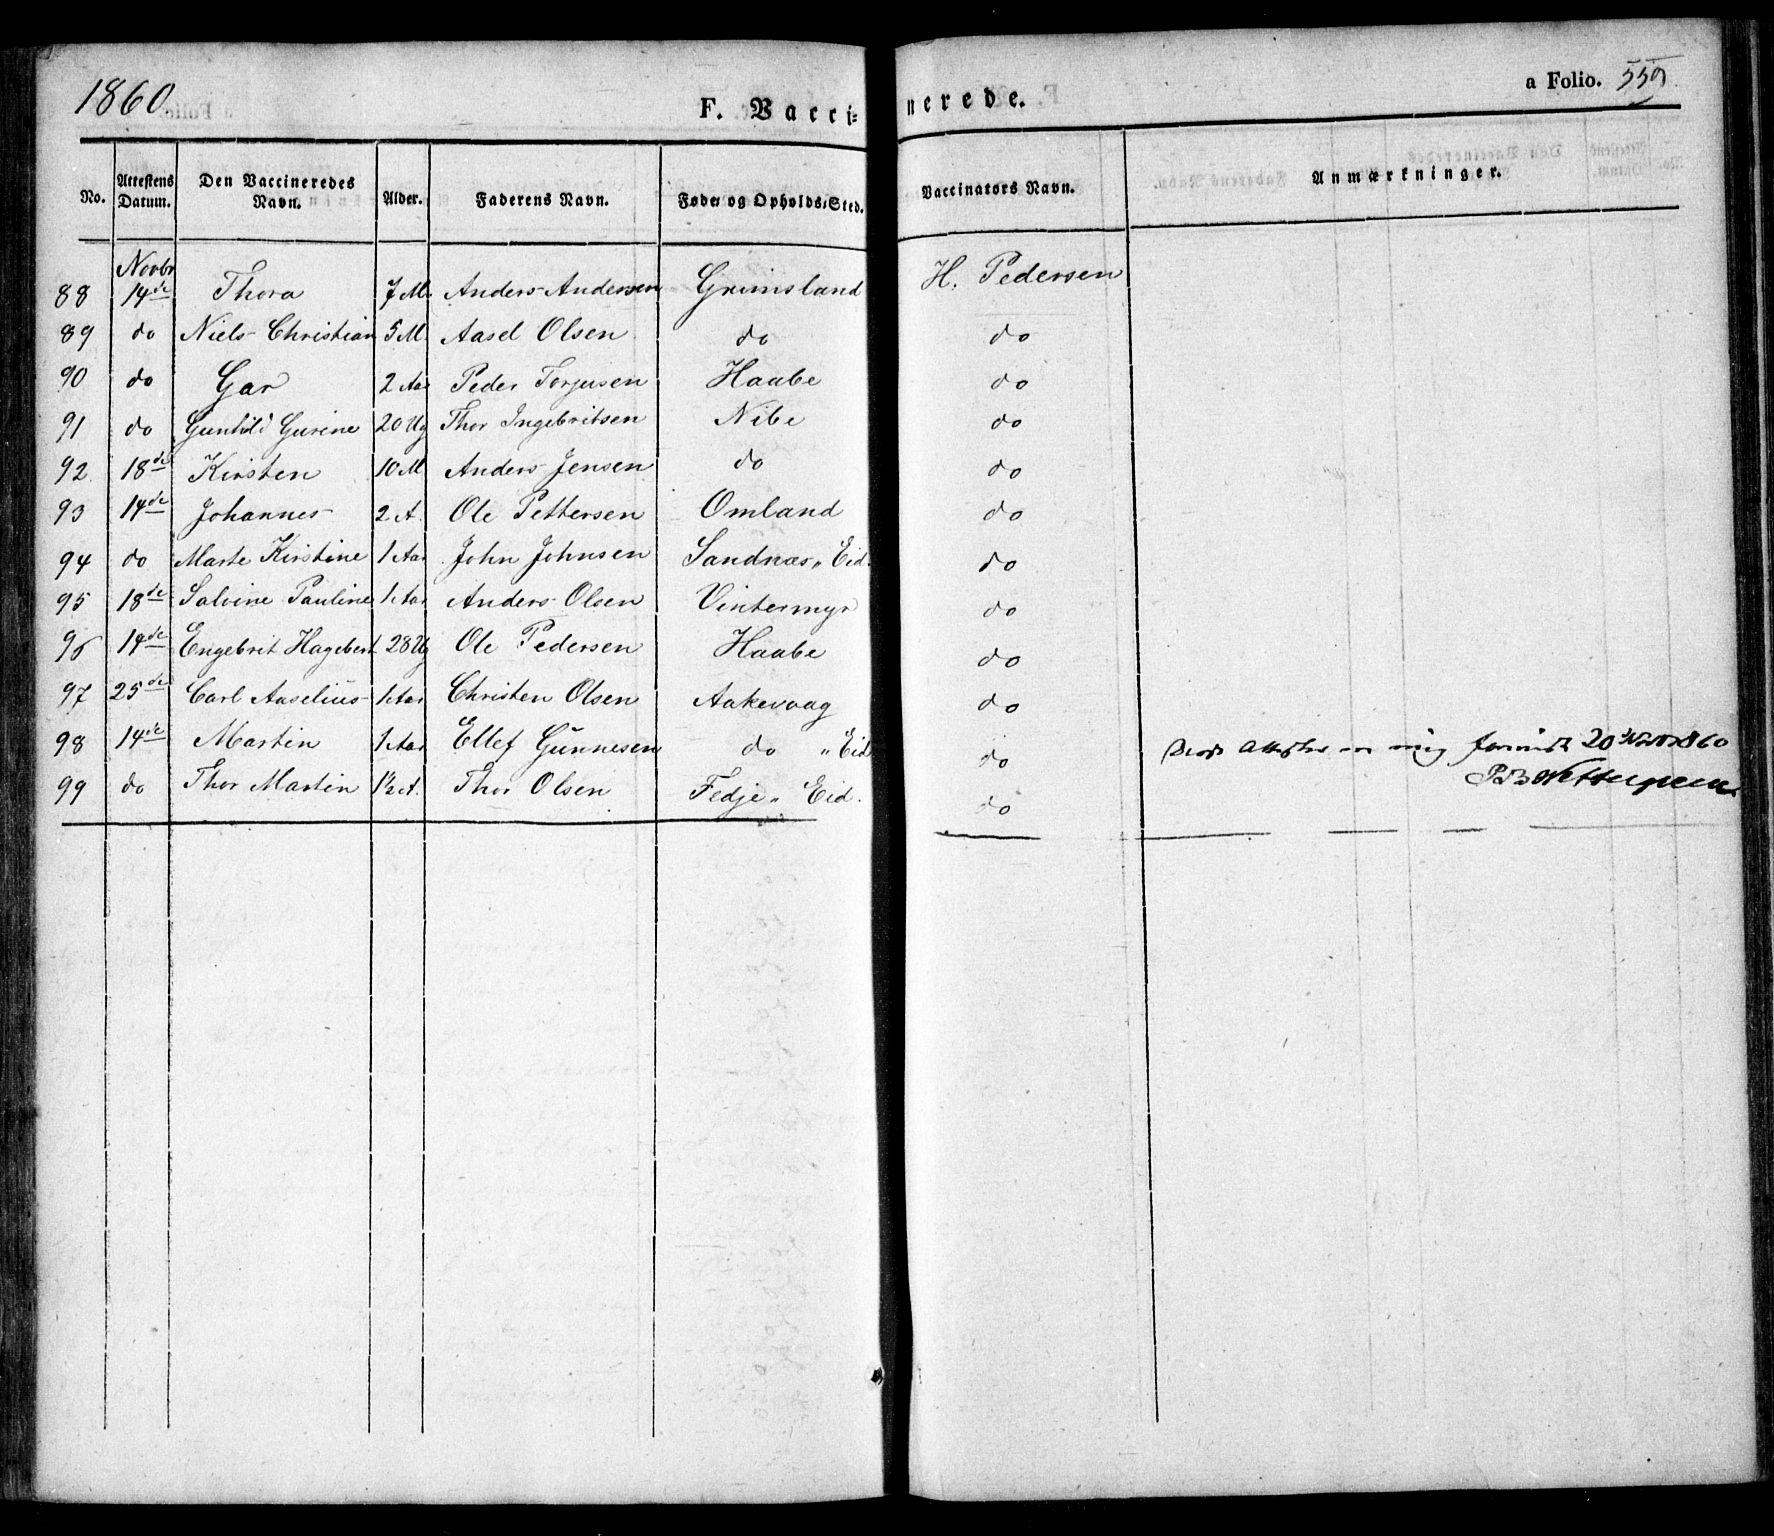 1860
F. Vaccinerede.
a Folio. 559
No. Attestens Datum. Den Vaccineredes Navn. Alder. Faderens Navn. Føde- og Opholds-Sted. Vaccinators Navn. Anmærkninger.
88 Novbr 14de Thora 7 M. Anders Andersen Grimsland H. Pedersen
89 do Niels Christian 5 M. Aasel Olsen do do
90 do Gar 2 Aar Peder Torjusen Haabe do
91 do Gunhild Gurine 20 Ug Thor Ingebritsen Nibe do
92 18de Kirsten 10 M Anders Jensen do do
93 14de Johannes 2 A. Ole Pettersen Omland do
94 do Marte Kirstine 1 Aar John Johnsen Sandnæs „ Eid. do
95 18de Salvine Pauline 1 Aar Anders Olsen Vintermyr do
96 14de Engebrit Hagebert 28 Ug Ole Pedersen Haabe do
97 25de Carl Aaselius 1 Aar Christen Olsen Aakevaag do
98 14de Martin 1 Aar Ellef Gunnesen do „ Eid do
99 do Thor Martin 1½ A. Thor Olsen Fedje „ Eid. do
mig 20 1860